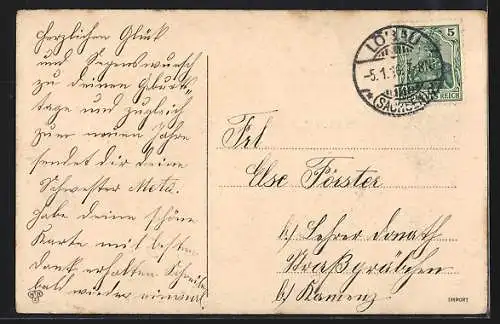 Herzlichen Glück
und Segenswunsch
zu deinem Geburts
tage und zugleich
zum neuen Jahre
sendet dir deine
Schwester Meta.
Habe deine schöne
Karte mit besten
Dank erhalten. Schreibe
bald wieder einmal
LÖBAU
-5.1.
*(SACHSEN)*
5
REICH
Frl
Else Förster
b/ Lehrer Donath
b/ Kamenz
IMPORT